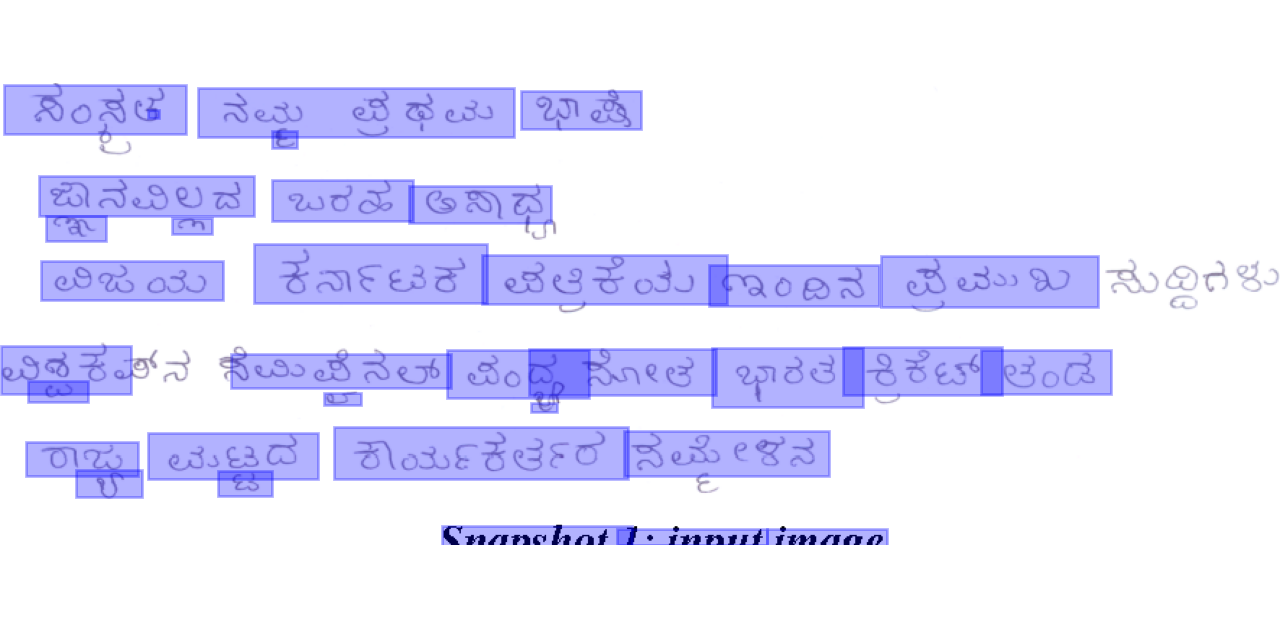 ಸಂಸ್ಕೃತ ನಮ್ಮ ಪ್ರಥಮ ಭಾಷೆ
ಜ್ಞಾನವಿಲ್ಲದ ಬರಹ ಅಸಾಧ್ಯ
ವಿಜಯ ಕರ್ನಾಟಕ ಪತ್ರಿಕೆಯ ಇಂದಿನ ಪ್ರಮುಖ ಸುದ್ದಿಗಳು
ವಿಶ್ವಕಪ್‌ನ ಸೆಮಿಪೈನಲ್ ಪಂದ್ಯ ಸೋತ ಭಾರತ ಕ್ರಿಕೆಟ್ ತಂಡ
ರಾಜ್ಯ ಮಟ್ಟದ ಕಾರ್ಯಕರ್ತರ ಸಮ್ಮೇಳನ
Snapshot 1: input image